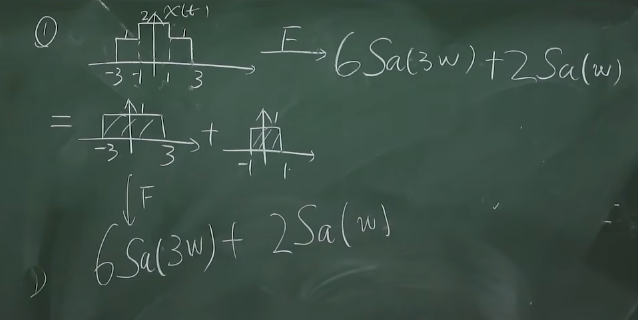 ① 2 x(t)
-3 -1 1 3 F 6Sa(3w)+2Sa(w)
= 1 -3 3 + 1 -1 1
F
6Sa(3w)+ 2Sa(w)